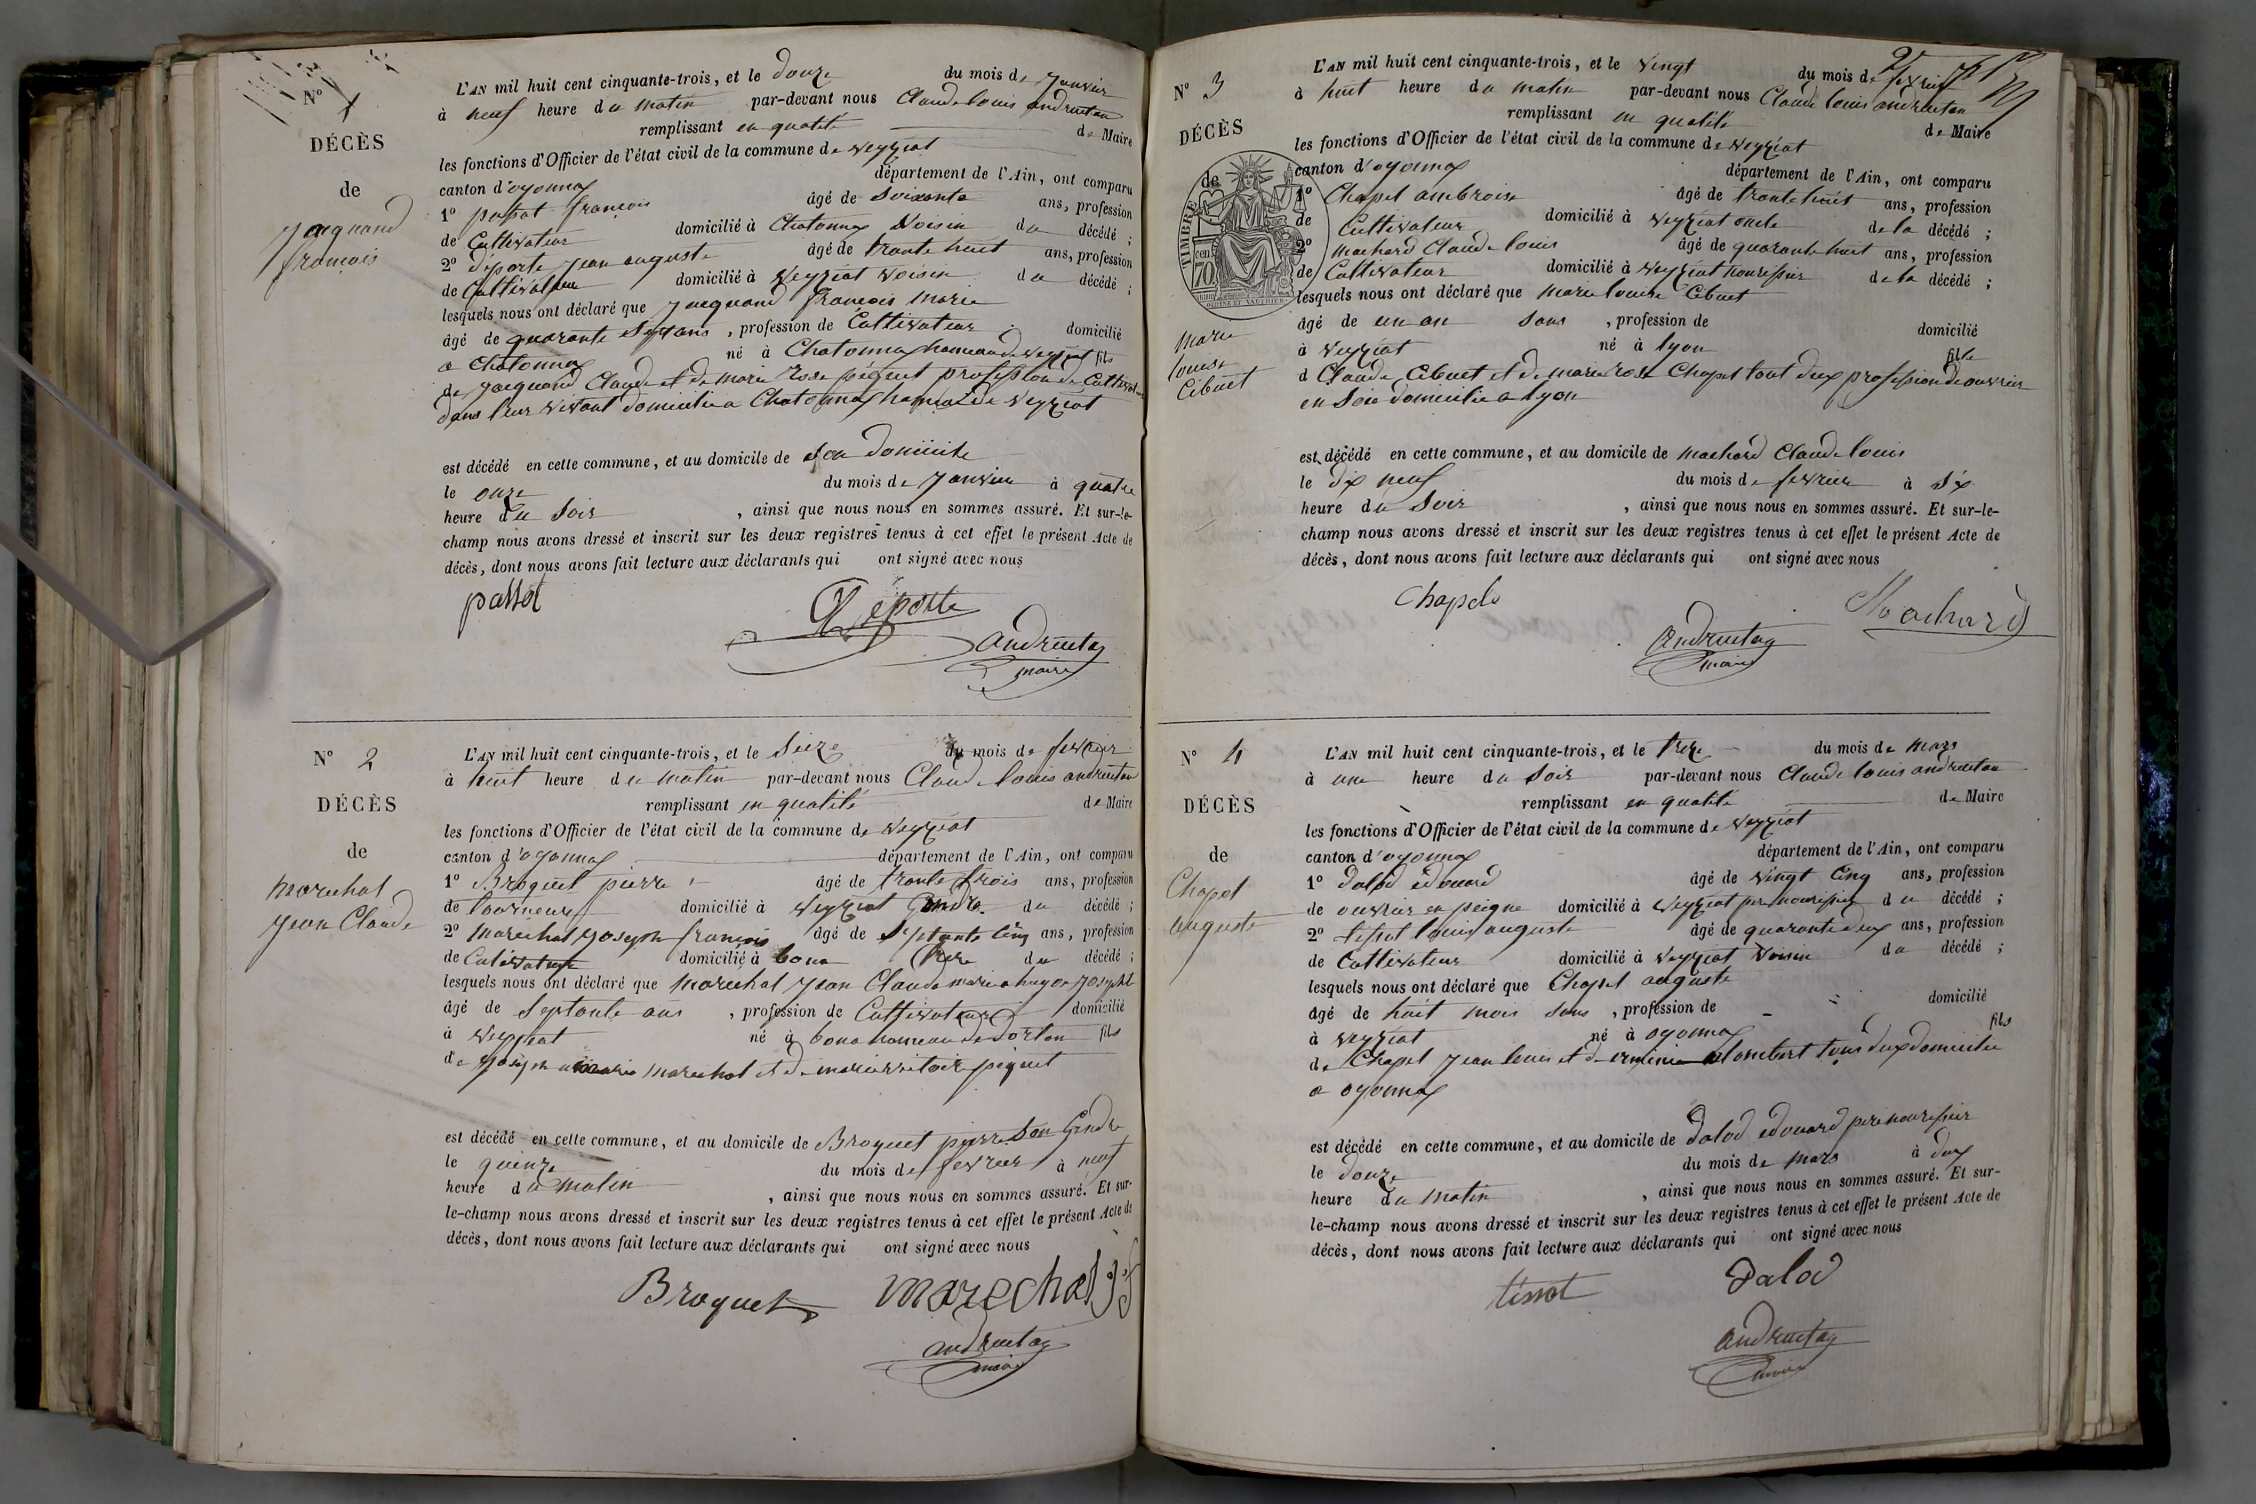 N° 1
DÉCÈS
de
Jacquand
françois
L'AN mil huit cent cinquante-trois, et le douze du mois de Janvier
à neuf heure du matin par-devant nous Claude louis andruetan
remplissant en qualité de Maire
les fonctions d'Officier de l'état civil de la commune de veyziat
canton d'oyonnax département de l'Ain, ont comparu
1° françois âgé de soixante ans, profession
de Cultivateur domicilié à Chatonnax Voisin du décédé ;
2° déporte jean auguste âgé de trante huit ans, profession
de Cultivateur domicilié à Veyziat voisin du décédé ;
lesquels nous ont déclaré que jacquand françois marie
âgé de quarante ans, profession de Cultivateur domicilié
a Chatonnax né à Chatonnax hameau de veyziat fils
de jacquand Claude et de marie rose profession de Cultivateur
dans leur vivant domicilié a Chatonnax hameau de veyziat
est décédé en cette commune, et au domicile de son domicile
le onze du mois de janvier à quatre
heure du soir , ainsi que nous nous en sommes assuré. Et sur-le-
champ nous avons dressé et inscrit sur les deux registres tenus à cet effet le présent Acte de
décès, dont nous avons fait lecture aux déclarants qui ont signé avec nous
passot
Déporte
andruetan
maire
N° 2
DÉCÈS
de
marechal
jean Claude
L'AN mil huit cent cinquante-trois, et le seize du mois de fevrier
à huit heure du matin par-devant nous Claude louis andruetan
remplissant en qualité de Maire
les fonctions d'Officier de l'état civil de la commune de veyziat
canton d'oyonnax département de l'Ain, ont comparu
1° Broquet pierre âgé de trante trois ans, profession
de tourneur domicilié à veyziat Gendre du décédé ;
2° maréchal joseph françois âgé de septante cinq ans, profession
de Cultivateur domicilié à bona frere du décédé ;
lesquels nous ont déclaré que marechal jean Claude marie joseph
âgé de septante ans , profession de Cultivateur domicilié
à veyziat né à bona hameau de dortan fils
de joseph marie marechal et de piquet
est décédé en cette commune, et au domicile de Broquet pierre son Gendre
le quinze du mois de fevrier à neuf
heure du matin , ainsi que nous nous en sommes assuré. Et sur-
le-champ nous avons dressé et inscrit sur les deux registres tenus à cet effet le présent Acte de
décès, dont nous avons fait lecture aux déclarants qui ont signé avec nous
Broquet marechal
andruetan
maire
N° 3
DÉCÈS
de
TIMBRE
70
marie
louise
Cibuet
L'AN mil huit cent cinquante-trois, et le vingt du mois de fevrier
à huit heure du matin par-devant nous Claude louis andruetan
remplissant en qualité de Maire
les fonctions d'Officier de l'état civil de la commune de veyziat
canton d'oyonnax département de l'Ain, ont comparu
1° Chapel ambroise âgé de trante huit ans, profession
de Cultivateur domicilié à veyziat oncle de la décédé ;
2° machard Claude louis âgé de quarante huit ans, profession
de Cultivateur domicilié à veyziat de la décédé ;
lesquels nous ont déclaré que marie louise Cibuet
âgé de un an sans , profession de domicilié
à veyziat né à lyon fille
d Claude Cibuet et de marie rose Chapel tout deux profession de ouvrier
en soie domicilié a lyon
est décédé en cette commune, et au domicile de machard Claude louis
le dix neuf du mois de fevrier à six
heure du soir , ainsi que nous nous en sommes assuré. Et sur-le-
champ nous avons dressé et inscrit sur les deux registres tenus à cet effet le présent Acte de
décès, dont nous avons fait lecture aux déclarants qui ont signé avec nous
Chapel
Machard
andruetan
maire
N° 4
DÉCÈS
de
Chapel
auguste
L'AN mil huit cent cinquante-trois, et le treze du mois de mars
à une heure du soir par-devant nous Claude louis andruetan
remplissant en qualité de Maire
les fonctions d'Officier de l'état civil de la commune de veyziat
canton d'oyonnax département de l'Ain, ont comparu
1° dalod édouard âgé de vingt cinq ans, profession
de ouvrier en peigne domicilié à veyziat du décédé ;
2° tissot louis auguste âgé de quarante deux ans, profession
de Cultivateur domicilié à veyziat voisin du décédé ;
lesquels nous ont déclaré que Chapel auguste
âgé de huit mois sans , profession de domicilié
à veyziat né à oyonnax fils
de Chapel jean louis et de tous deux domicilié
a oyonnax
est décédé en cette commune, et au domicile de dalod édouard
le douze du mois de mars à deux
heure du matin , ainsi que nous nous en sommes assuré. Et sur-
le-champ nous avons dressé et inscrit sur les deux registres tenus à cet effet le présent Acte de
décès, dont nous avons fait lecture aux déclarants qui ont signé avec nous
tissot dalod
andruetan
maire